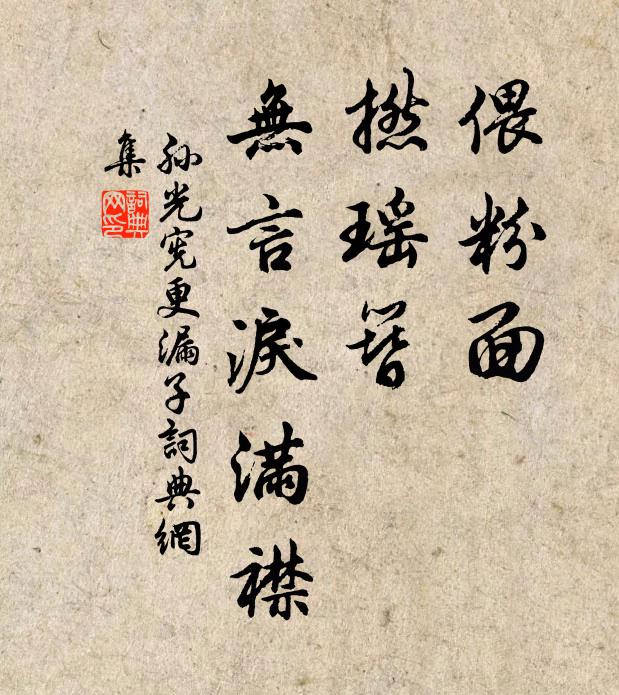 偎粉面
撚瑶簪
無言淚满襟
孙光宪更漏子詞典網
集
詞典网印